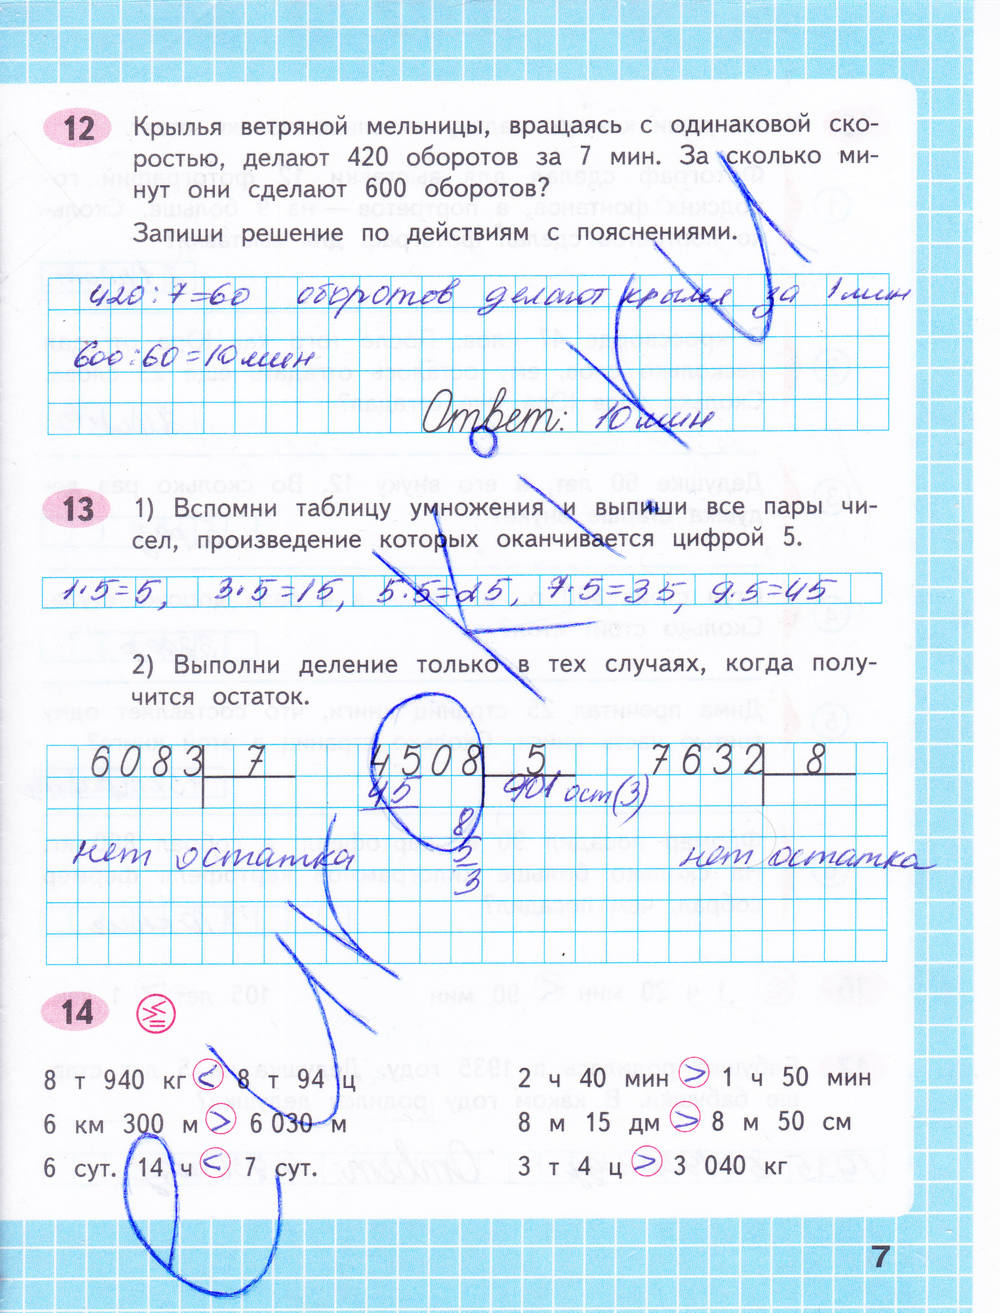 12 Крылья ветряной мельницы, вращаясь с одинаковой ско-
ростью, делают 420 оборотов за 7 мин. За сколько ми-
нут они сделают 600 оборотов?
Запиши решение по действиям с пояснениями.
420:7=60 оборотов делают крылья за 1 мин
600:60=10 мин
Ответ: 10 мин
13 1) Вспомни таблицу умножения и выпиши все пары чи-
сел, произведение которых оканчивается цифрой 5.
1·5=5, 3·5=15, 5·5=25, 7·5=35, 9·5=45
2) Выполни деление только в тех случаях, когда полу-
чится остаток.
6083 7 4508 5 7632 8
45 901 ост(3)
8
нет остатка 5 нет остатка
3
14 ≶=
8 т 940 кг < 8 т 94 ц 2 ч 40 мин > 1 ч 50 мин
6 км 300 м > 6 030 м 8 м 15 дм > 8 м 50 см
6 сут. 14 ч < 7 сут. 3 т 4 ц > 3 040 кг
7